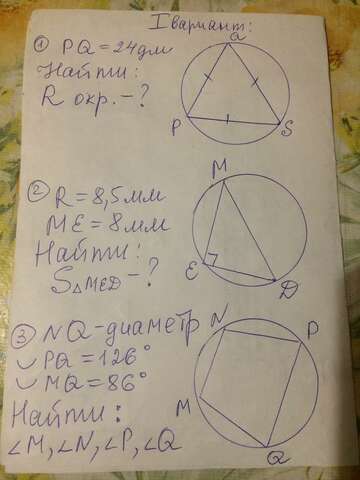 I вариант:
① PQ = 24дм
Найти:
R окр. - ?
Q
P
S
② R = 8,5мм
ME = 8мм
Найти:
S△MED - ?
M
E
D
③ NQ - диаметр
◡PQ = 126°
◡MQ = 86°
Найти:
∠M, ∠N, ∠P, ∠Q
N
P
M
Q